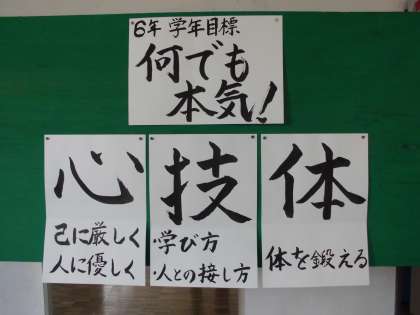 6年 学年目標
何でも
本気!
心
己に厳しく
人に優しく
技
・学び方
・人との接し方
体
体を鍛える